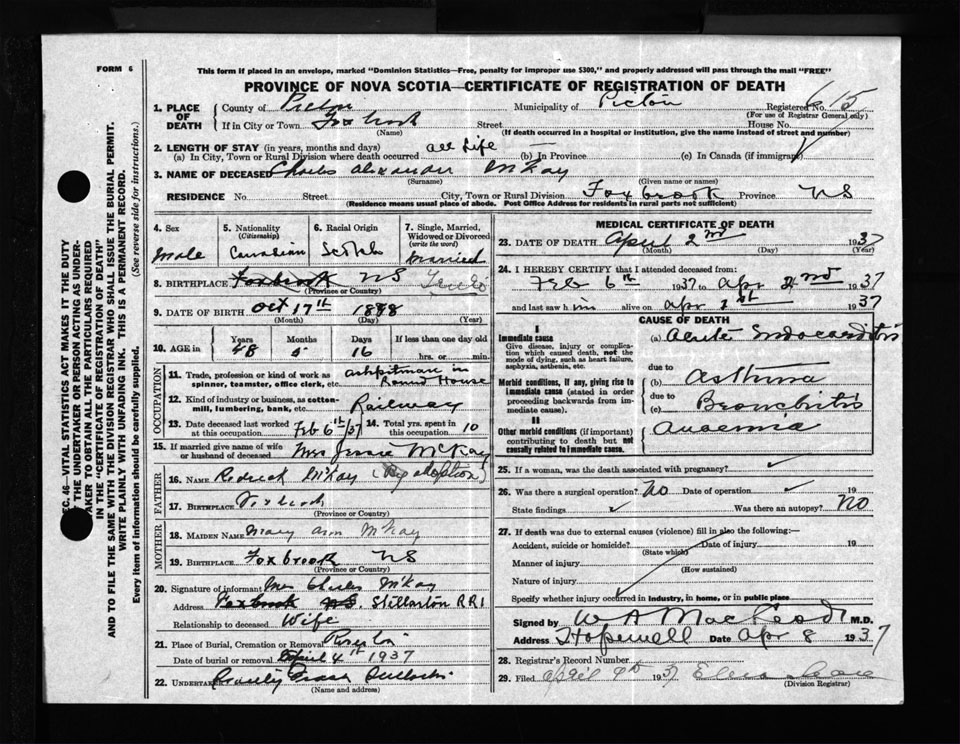 FORM 6
This form if placed in an envelope, marked "Dominion Statistics—Free, penalty for improper use $300," and properly addressed will pass through the mail "FREE"
PROVINCE OF NOVA SCOTIA—CERTIFICATE OF REGISTRATION OF DEATH
SEC. 46—VITAL STATISTICS ACT MAKES IT THE DUTY
OF THE UNDERTAKER OR PERSON ACTING AS UNDERTAKER TO OBTAIN ALL THE PARTICULARS REQUIRED
IN THE "CERTIFICATE OF REGISTRATION OF DEATH"
AND TO FILE THE SAME WITH THE DIVISION REGISTRAR WHO SHALL ISSUE THE BURIAL PERMIT.
WRITE PLAINLY WITH UNFADING INK. THIS IS A PERMANENT RECORD.
Every item of information should be carefully supplied. (See reverse side for instructions.)
1. PLACE OF DEATH County of Pictou Municipality of Pictou Registered No. 615
(For use of Registrar General only)
If in City or Town Foxbrook Street House No.
(Name) (If death occurred in a hospital or institution, give the name instead of street and number)
2. LENGTH OF STAY (in years, months and days)
(a) In City, Town or Rural Division where death occurred all Life (b) In Province — (c) In Canada (if immigrant)
3. NAME OF DECEASED Charles Alexander McKay
(Surname) (Given name or names)
RESIDENCE No. Street City, Town or Rural Division Foxbrook Province NS
(Residence means usual place of abode. Post Office Address for residents in rural parts not sufficient)
4. Sex Male
5. Nationality (Citizenship) Canadian
6. Racial Origin Scotch
7. Single, Married, Widowed or Divorced (write the word) Married
8. BIRTHPLACE Foxbrook NS
(Province or Country)
9. DATE OF BIRTH Oct 17th 1888
(Month) (Day) (Year)
10. AGE in Years Months Days If less than one day old
48 5 16 hrs. or min.
OCCUPATION
11. Trade, profession or kind of work as spinner, teamster, office clerk, etc. ashpitman in Round House
12. Kind of industry or business, as cotton-mill, lumbering, bank, etc. Railway
13. Date deceased last worked at this occupation Feb 6th/37 14. Total yrs. spent in this occupation 10
15. If married give name of wife or husband of deceased Mrs Jessie McKay
FATHER
16. NAME Roderick McKay (By adoption)
17. BIRTHPLACE Foxbrook
(Province or Country)
MOTHER
18. MAIDEN NAME Mary Ann McKay
19. BIRTHPLACE Foxbrook NS
(Province or Country)
20. Signature of informant Mrs Charles McKay
Address Foxbrook NS. Stellarton RR1
Relationship to deceased Wife
21. Place of Burial, Cremation or Removal
Date of burial or removal April 4th 1937
22. UNDERTAKER
(Name and address)
MEDICAL CERTIFICATE OF DEATH
23. DATE OF DEATH April 2nd 1937
(Month) (Day) (Year)
24. I HEREBY CERTIFY that I attended deceased from:
Feb 6th 1937 to Apr 2nd 1937
and last saw him alive on Apr 1st 1937
CAUSE OF DEATH
I
Immediate cause
Give disease, injury or complication which caused death, not the mode of dying, such as heart failure, asphyxia, asthenia, etc.
(a) Acute Endocarditis
due to
Morbid conditions, if any, giving rise to immediate cause (stated in order proceeding backwards from immediate cause).
(b) Asthma
due to
(c) Bronchitis
II
Other morbid conditions (if important) contributing to death but not causally related to immediate cause.
Anaemia
25. If a woman, was the death associated with pregnancy?
26. Was there a surgical operation? No Date of operation 19
State findings Was there an autopsy? No
27. If death was due to external causes (violence) fill in also the following:—
Accident, suicide or homicide? Date of injury 19
(State which)
Manner of injury
(How sustained)
Nature of injury
Specify whether injury occurred in industry, in home, or in public place
Signed by W A MacLeod M.D.
Address Hopewell Date Apr 8 1937
28. Registrar's Record Number
29. Filed April 9th 1937
(Division Registrar)